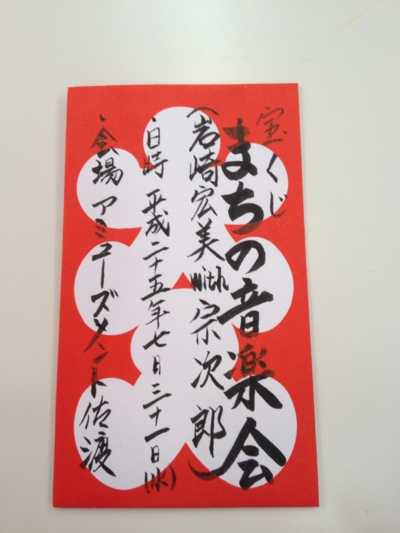 宝くじ
まちの音楽会
(岩崎宏美with宗次郎)
・日時 平成二十五年七月三十一日(水)
・会場 アミューズメント佐渡